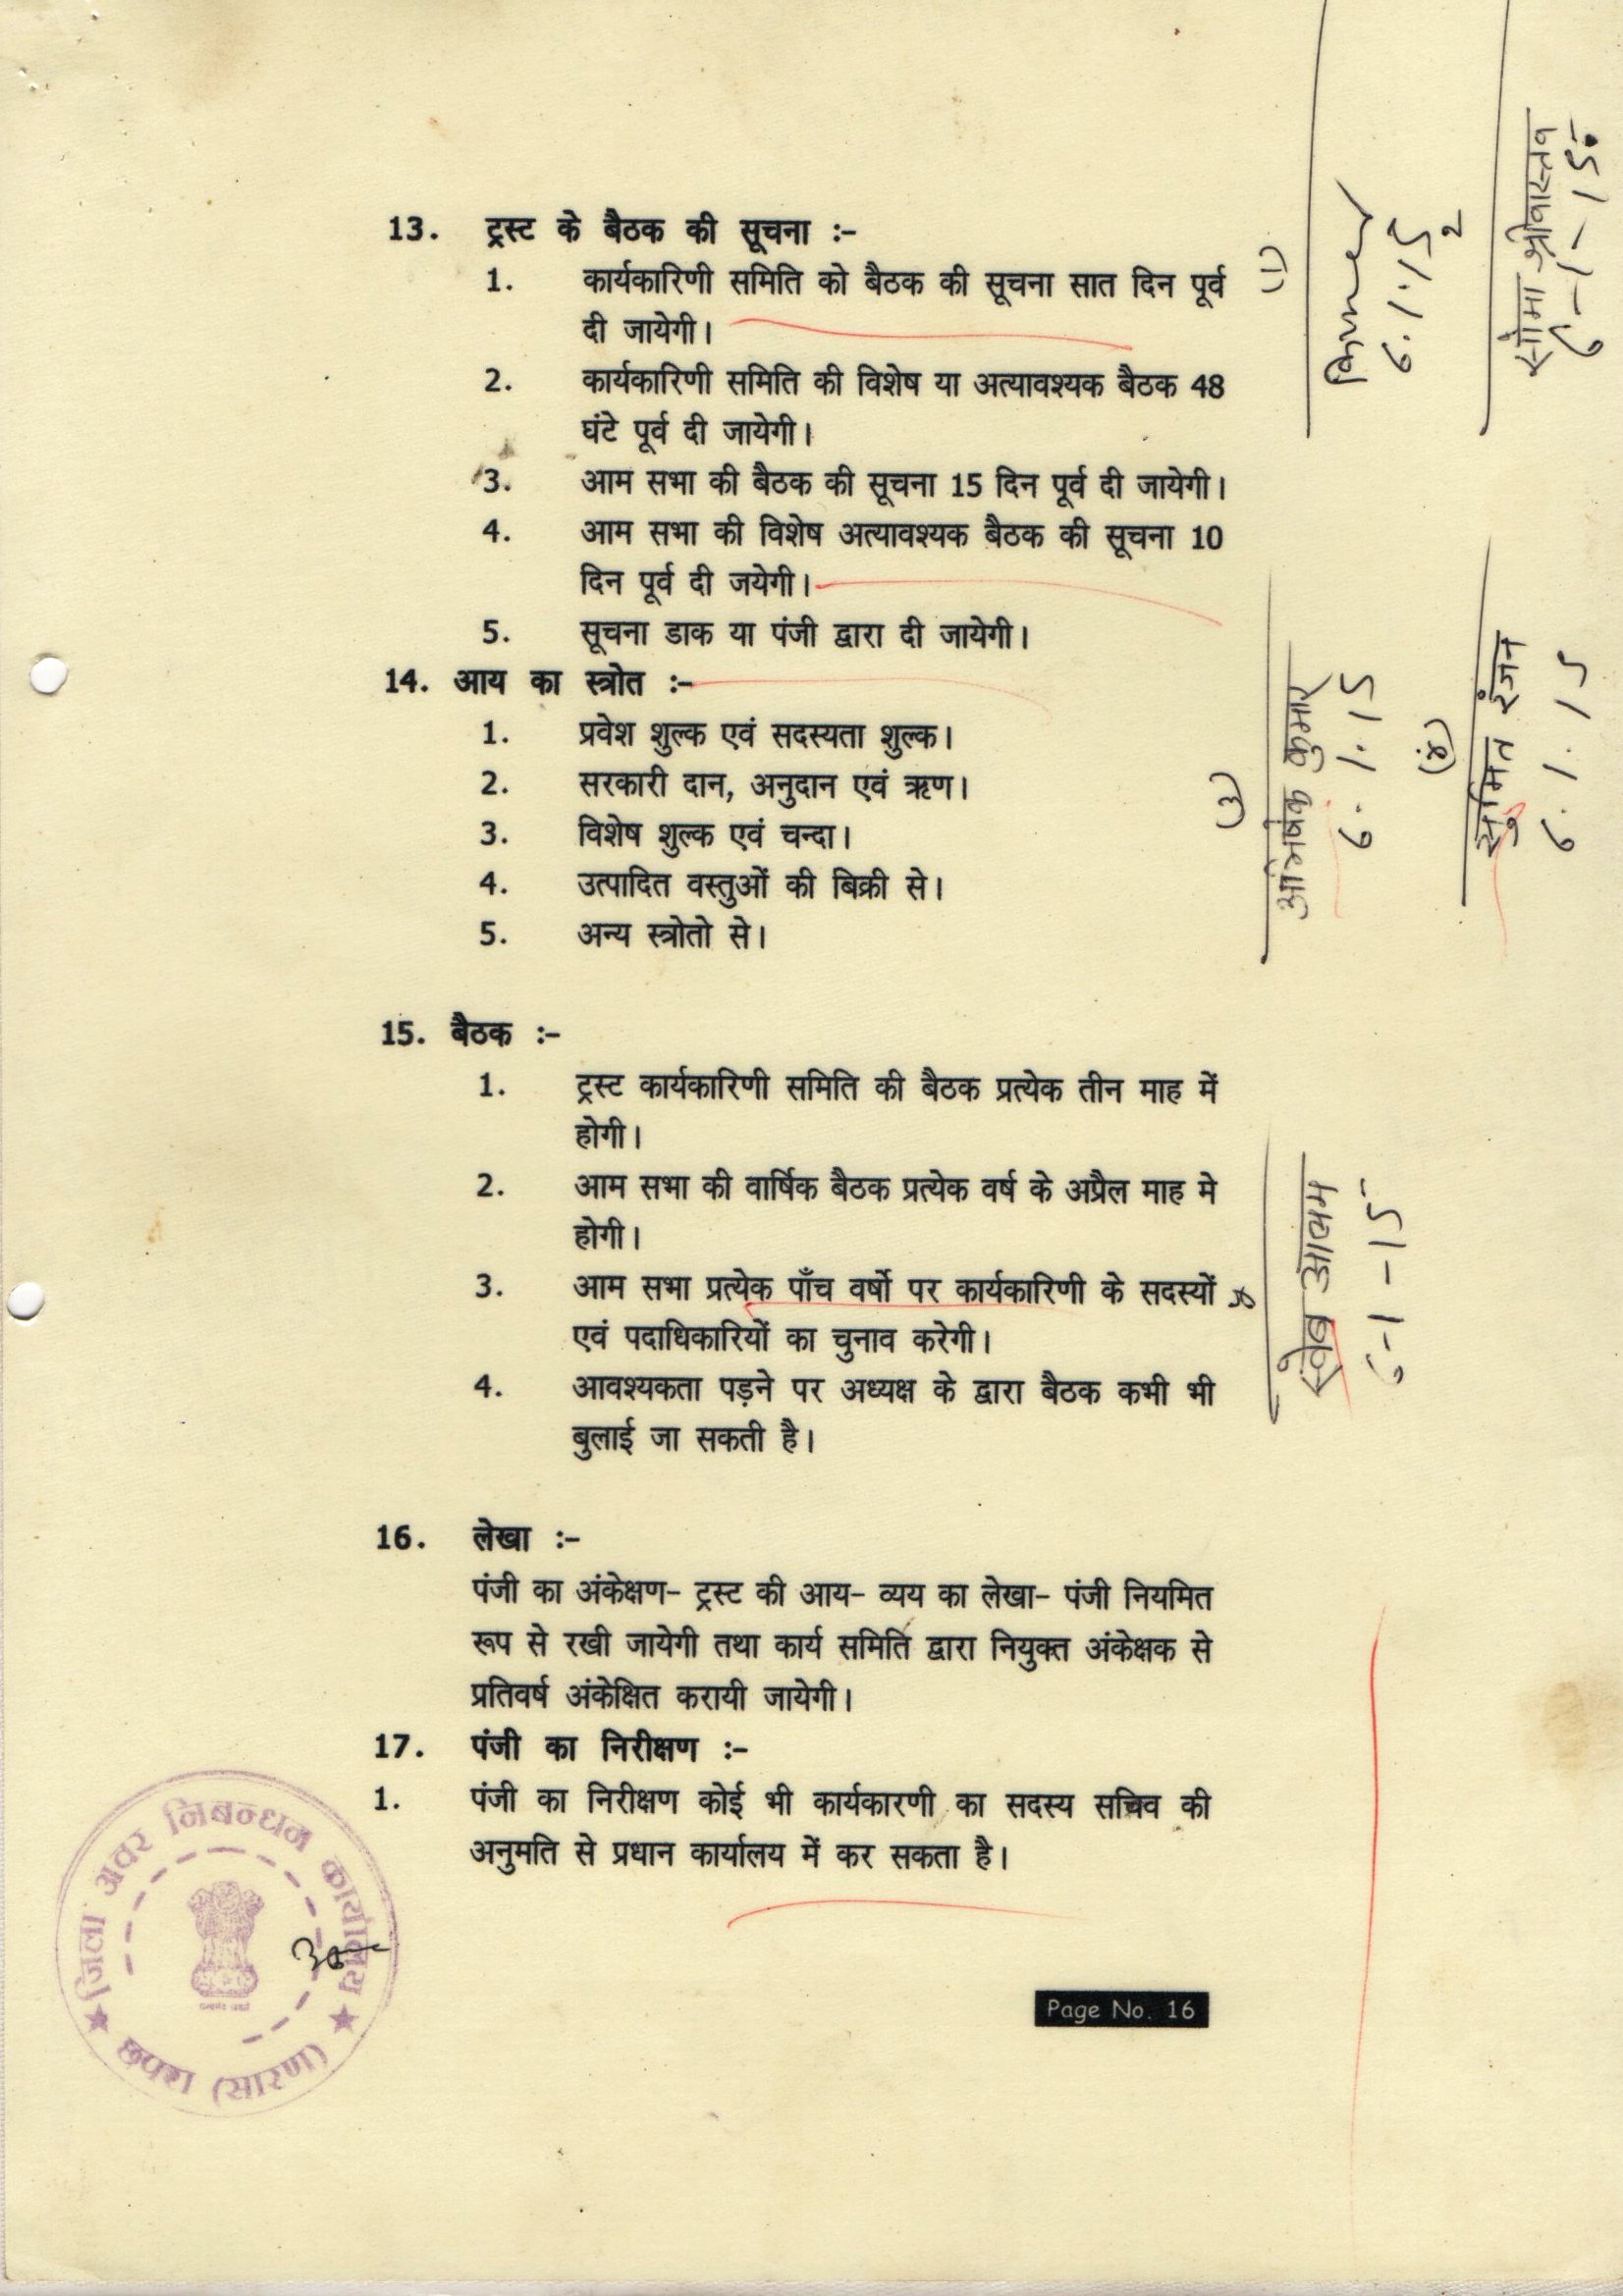 13. ट्रस्ट के बैठक की सूचना :-
1. कार्यकारिणी समिति को बैठक की सूचना सात दिन पूर्व
दी जायेगी।
2. कार्यकारिणी समिति की विशेष या अत्यावश्यक बैठक 48
घंटे पूर्व दी जायेगी।
3. आम सभा की बैठक की सूचना 15 दिन पूर्व दी जायेगी।
4. आम सभा की विशेष अत्यावश्यक बैठक की सूचना 10
दिन पूर्व दी जयेगी।
5. सूचना डाक या पंजी द्वारा दी जायेगी।
14. आय का स्त्रोत :-
1. प्रवेश शुल्क एवं सदस्यता शुल्क।
2. सरकारी दान, अनुदान एवं ऋण।
3. विशेष शुल्क एवं चन्दा।
4. उत्पादित वस्तुओं की बिक्री से।
5. अन्य स्त्रोतो से।
15. बैठक :-
1. ट्रस्ट कार्यकारिणी समिति की बैठक प्रत्येक तीन माह में
होगी।
2. आम सभा की वार्षिक बैठक प्रत्येक वर्ष के अप्रैल माह मे
होगी।
3. आम सभा प्रत्येक पाँच वर्षो पर कार्यकारिणी के सदस्यों
एवं पदाधिकारियों का चुनाव करेगी।
4. आवश्यकता पड़ने पर अध्यक्ष के द्वारा बैठक कभी भी
बुलाई जा सकती है।
16. लेखा :-
पंजी का अंकेक्षण- ट्रस्ट की आय- व्यय का लेखा- पंजी नियमित
रूप से रखी जायेगी तथा कार्य समिति द्वारा नियुक्त अंकेक्षक से
प्रतिवर्ष अंकेक्षित करायी जायेगी।
17. पंजी का निरीक्षण :-
1. पंजी का निरीक्षण कोई भी कार्यकारणी का सदस्य सचिव की
अनुमति से प्रधान कार्यालय में कर सकता है।
Page No. 16
जिला अवर निबन्धन कार्यालय
छपरा (सारण)
(1)
6.1.15
2
सोमा श्रीवास्तव
6-1-15
(3)
अभिषेक कुमार
6.1.15
(4)
सुमित रंजन
6.1.15
आलम
6-1-15